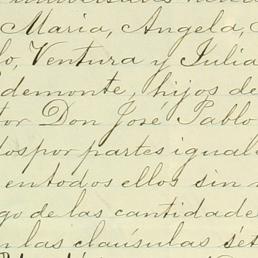 Maria, Angela,
lo, Ventura y Julia
demonte, hijos de
tor Don José Pablo
dos por partes iguale
en todos ellos sin
go de las cantidade
n las cláusulas sét